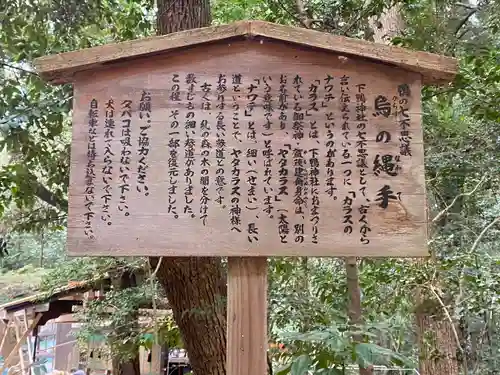 鴨の七不思議
烏の縄手
からす
なわて
下鴨神社の七不思議として、古えから
言い伝えられている一つに「カラスの
ナワテ」があります。
「カラス」とは、下鴨神社におまつりさ
れている御祭神、賀茂建角身命の、別の
お名前があり、「ヤタカラス」(太陽と
いう意味です)と呼いれています。
「ナワテ」とは「細い(せまい)、長い
道ということで、ヤタカラスの神様へ
お参りする長い参道との意です。
古くは、糺の森の木の間を分けて
数本もの細い参道がありました。
この程、その一部を復元しました。
お願い、ご協力ください。
タバコは吸わないで下さい。
犬は連れて入らないで下さい。
自転車などは持ち込まないで下さい。